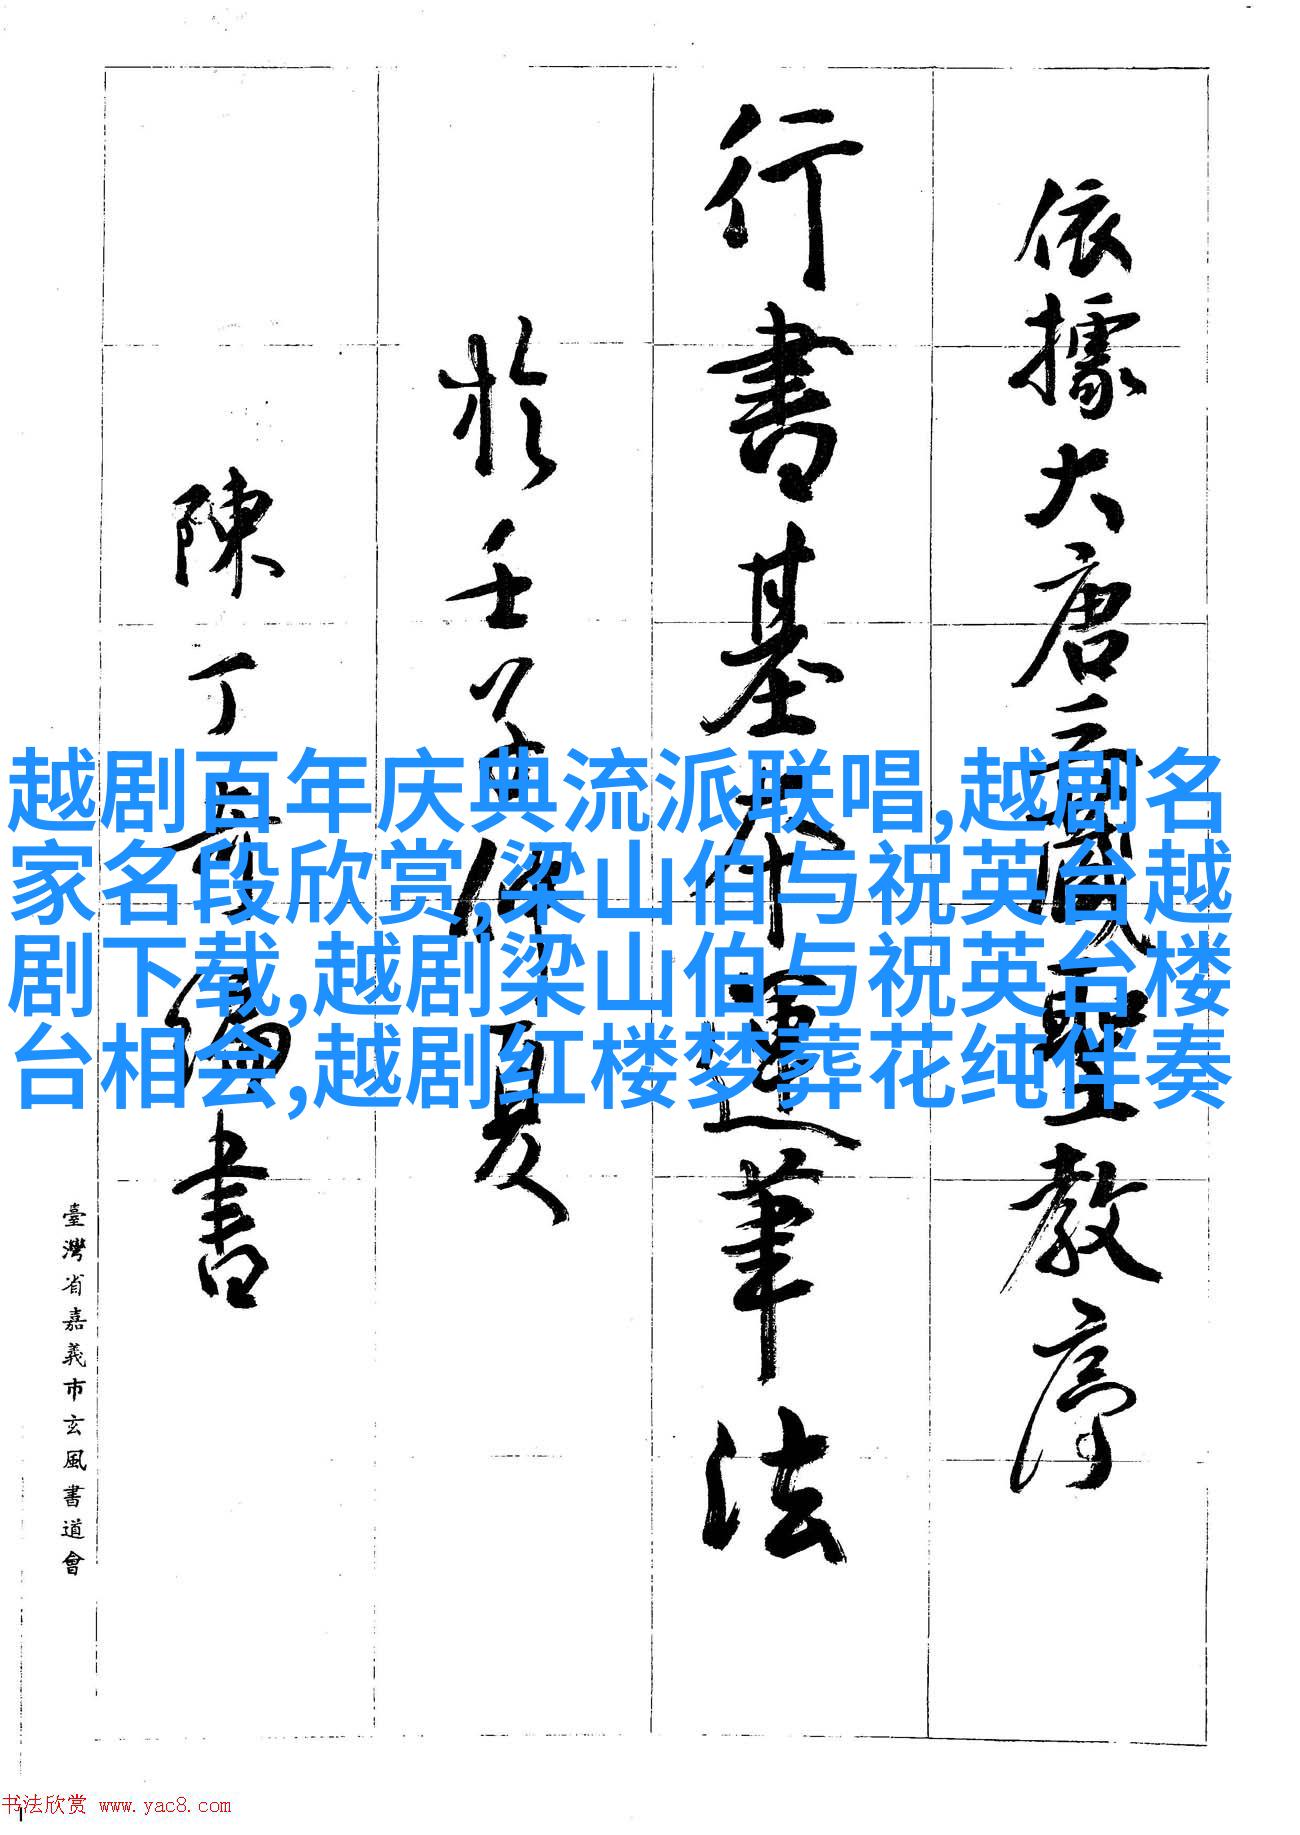 依據大唐三藏聖教序
行書基本運筆法
於壬子仲夏
陳丁奇編書
臺灣省嘉義市玄風書道會
越剧百年庆典流派联唱,越剧名
家名段欣赏,梁山伯与祝英台越
剧下载,越剧梁山伯与祝英台楼
台相会,越剧红楼梦葬花纯伴奏
书法欣赏 www.yac8.com
1